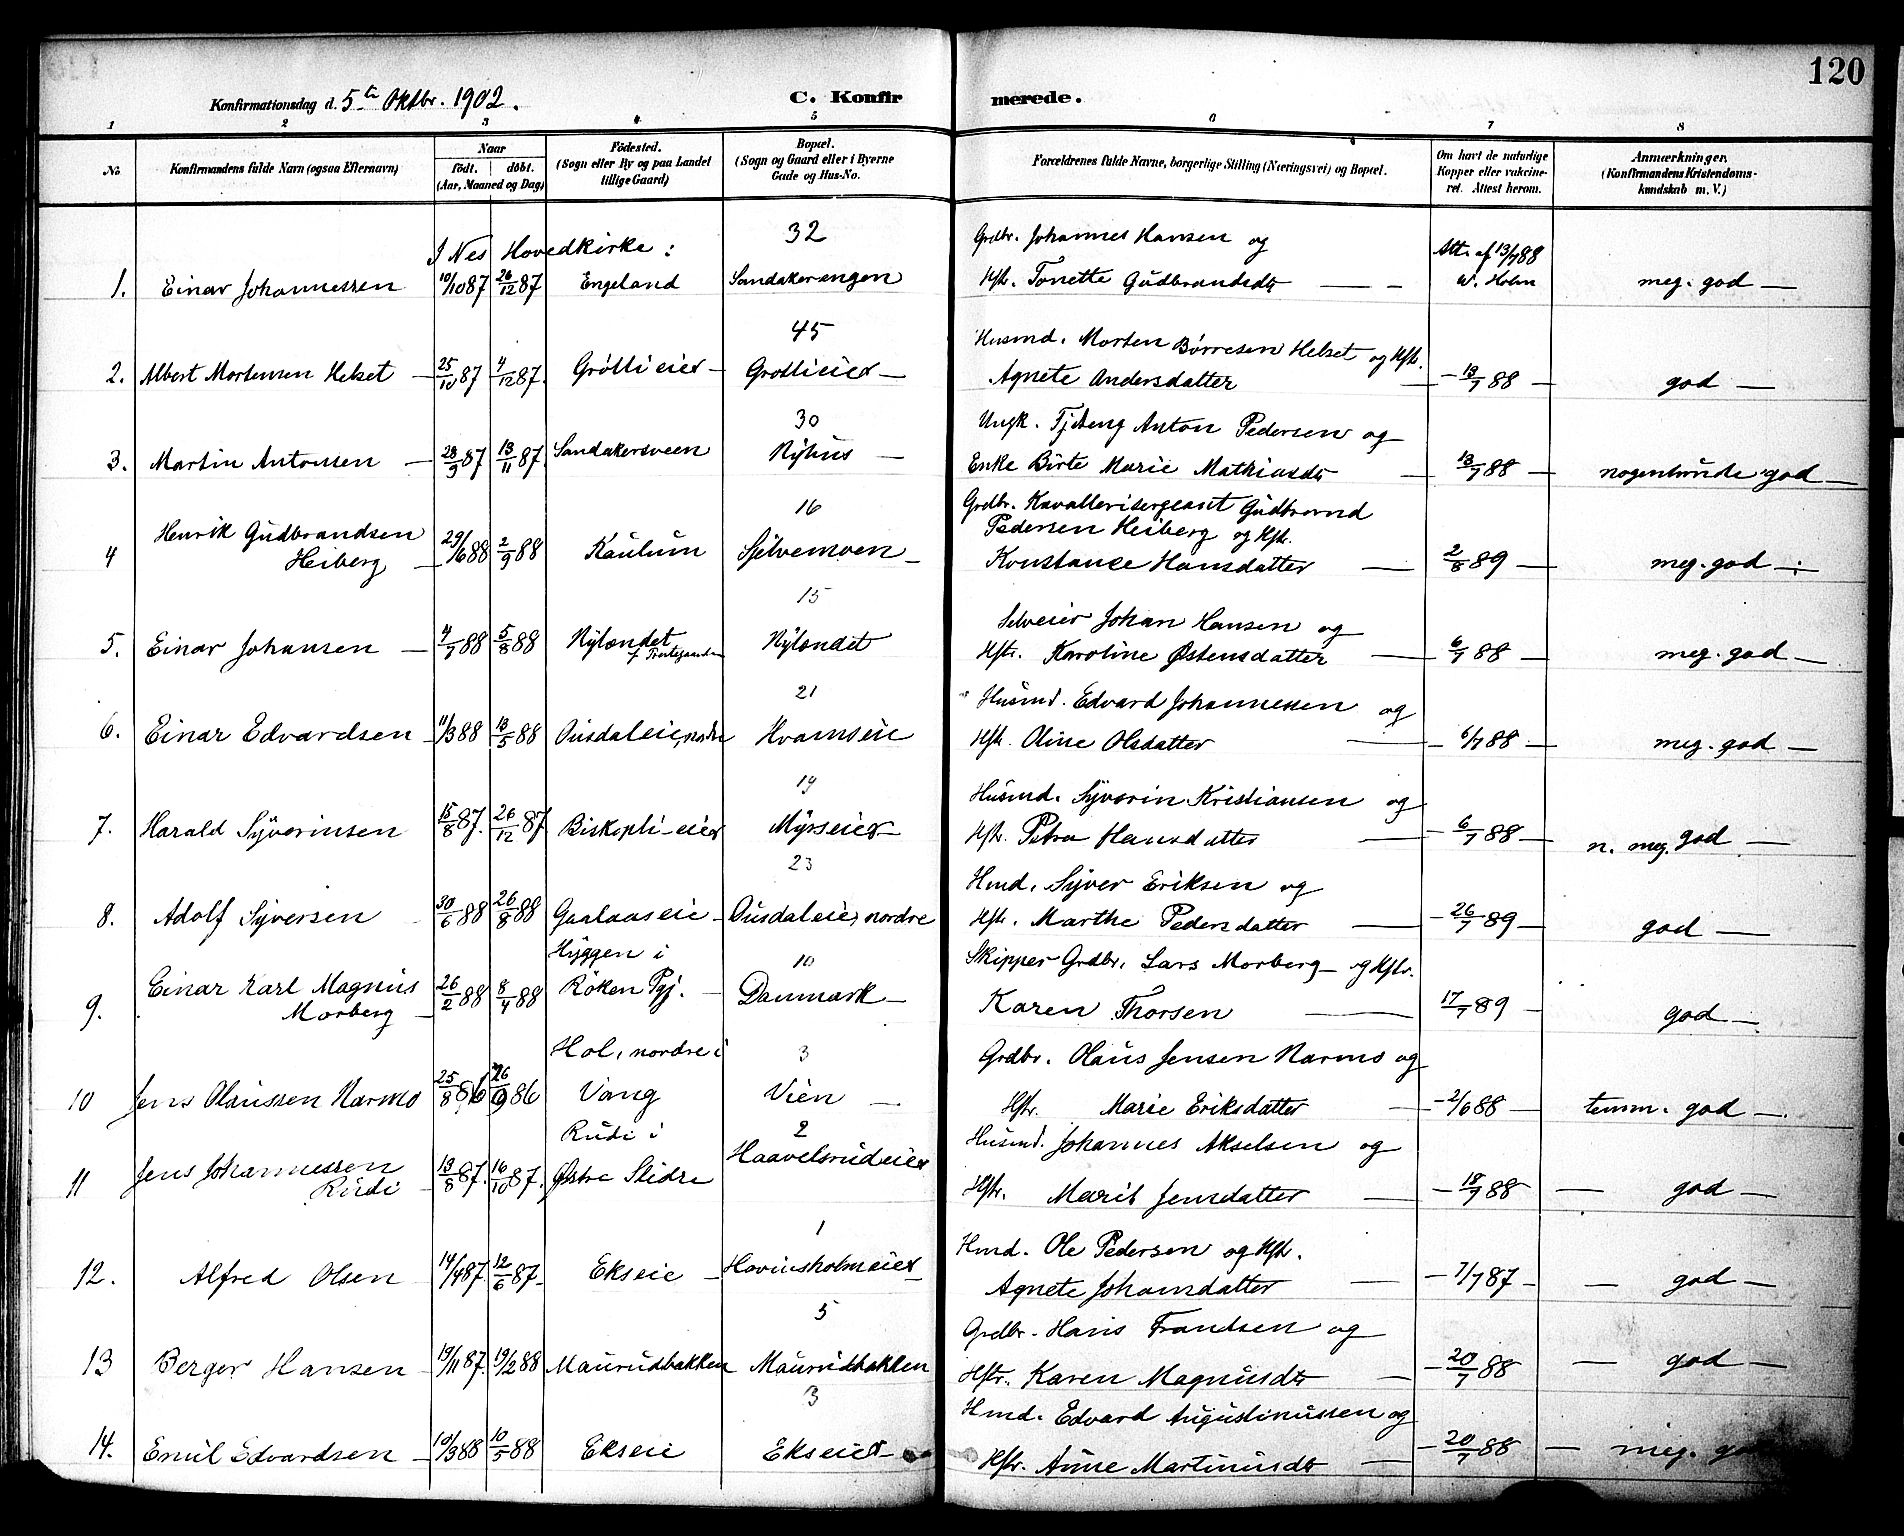 120
Konfirmationsdag d. 5te Oktbr. 1902.
C. Konfirmerede.
1 2 3 4 5 6 7 8
No.
Konfirmandens fulde Navn (ogsaa Efternavn)
Naar
født. døbt.
(Aar, Maaned og Dag)
Fødested.
(Sogn eller By og paa Landet
tillige Gaard)
Bopæl.
(Sogn og Gaard eller i Byerne
Gade og Hus-No.
Forældrenes fulde Navne, borgerlige Stilling (Næringsvei) og Bopæl.
Om havt de naturlige
Kopper eller vakcine-
ret. Attest herom.
Anmærkninger.
(Konfirmandens Kristendoms-
kundskab m. V.)
I Nes Hovedkirke:
32 Grdbr. Johannes Hansen og Att. af 13/7 88
1. Einar Johannessen 10/10 87 26/12 87 Engeland Sandakerengen Hstr. Tonette Gudbrandsdtr — W. Holm meg. god —
45 Husmd. Morten Børresen Helset og Hstr.
2. Albert Mortensen Helset — 25/10 87 4/12 87. Grøtlieier — Grøtlieier — Agnete Andersdatter — 13/7 88 — god —
30 Ungk. Tjstteng Anton Pedersen og
3. Martin Antonsen — 28/9 87 13/11 87. Sandakersveen Nyhus — Enke Birte Marie Mathiasdtr — 13/7 88 — nogenlunde god —
16 Grdbr. Kavallerisergeant Gudbrand
Henrik Gudbrandsen Pedersen Heiberg og Hstr.
4 Heiberg — 29/6 88 2/9 88 Kaulum Sjelvemoen — Konstance Hansdatter — 2/8 89 — meg. god —
15 Selveier Johan Hansen og
5. Einar Johansen — 4/7 88 5/8 88 Nylændet Nylændet Hstr. Karoline Østensdatter — 6/7 88 — meg. god —
21 Husmd. Edvard Johannessen og
6. Einar Edvardsen — 11/3 88 13/5 88 Ousdaleie, nordre Hvamseie Hstr. Oline Olsdatter — 6/7 88 — meg. god —
19 Husmd. Syverin Kristiansen og
7. Harald Syverinsen 15/8 87. 26/12 87 Biskopli-eier Myrseier Hstr. Petra Hansdatter — 6/7 88 — n. meg. god —
23 Hmd. Syver Eriksen og
8. Adolf Syversen 30/6 88 26/8 88 Gaalaaseie — Ousdaleier, nordre Hstr. Marthe Pedersdatter — 26/7 89 — god —
Hyggen i 10 Skipper Grdbr. Lars Morberg og Hstr.
9. Einar Karl Magnus 26/2 88 8/4 88 Røken Pgj. — Danmark — Karen Thorsen — 17/7 89 — god —
Morberg —
Hol, nordre i 3 Grdbr. Olaus Jensen Narmo og
10 Jens Olaussen Narmo 25/8 86 26/9 86 Vang Vien — Hstr. Marie Eriksdatter — 2/6 88 — temm. god —
Rudi i 2 Husmd. Johannes Akselsen og
11 Jens Johannessen 13/8 87. 16/10 87. Østre Slidre Haavelsrudeier Hstr. Marit Jensdatter — 18/7 88 — god —
Rudi —
1 Hmd. Ole Pedersen og Hstr.
12. Alfred Olsen 14/4 87. 12/6 87 Ekseie — Hovinsholmeier Agnete Johansdatter — 7/7 87 — god —
5 Grdbr. Hans Frandsen og
13 Berger Hansen — 19/11 87. 19/2 88 Maurudbakken Maurudbakken Hstr. Karen Magnusdtr — 20/7 88 — god —
3 Hmd. Edvard Augustinussen og
14. Emil Edvardsen — 10/3 88 10/5 88 Ekseie Ekseier — Hstr. Anne Martinusdtr — 20/7 88 — meg. god